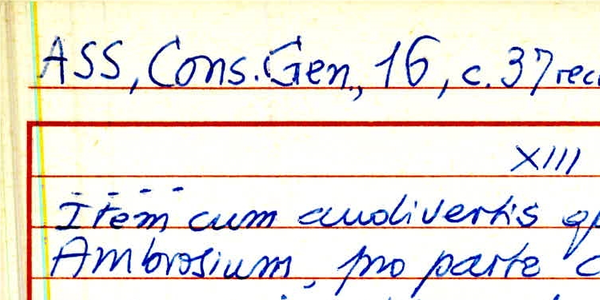 ASS, Cons. Gen., 16, c. 37
XIII
Item cum audivertis
Ambrosium, pro parte